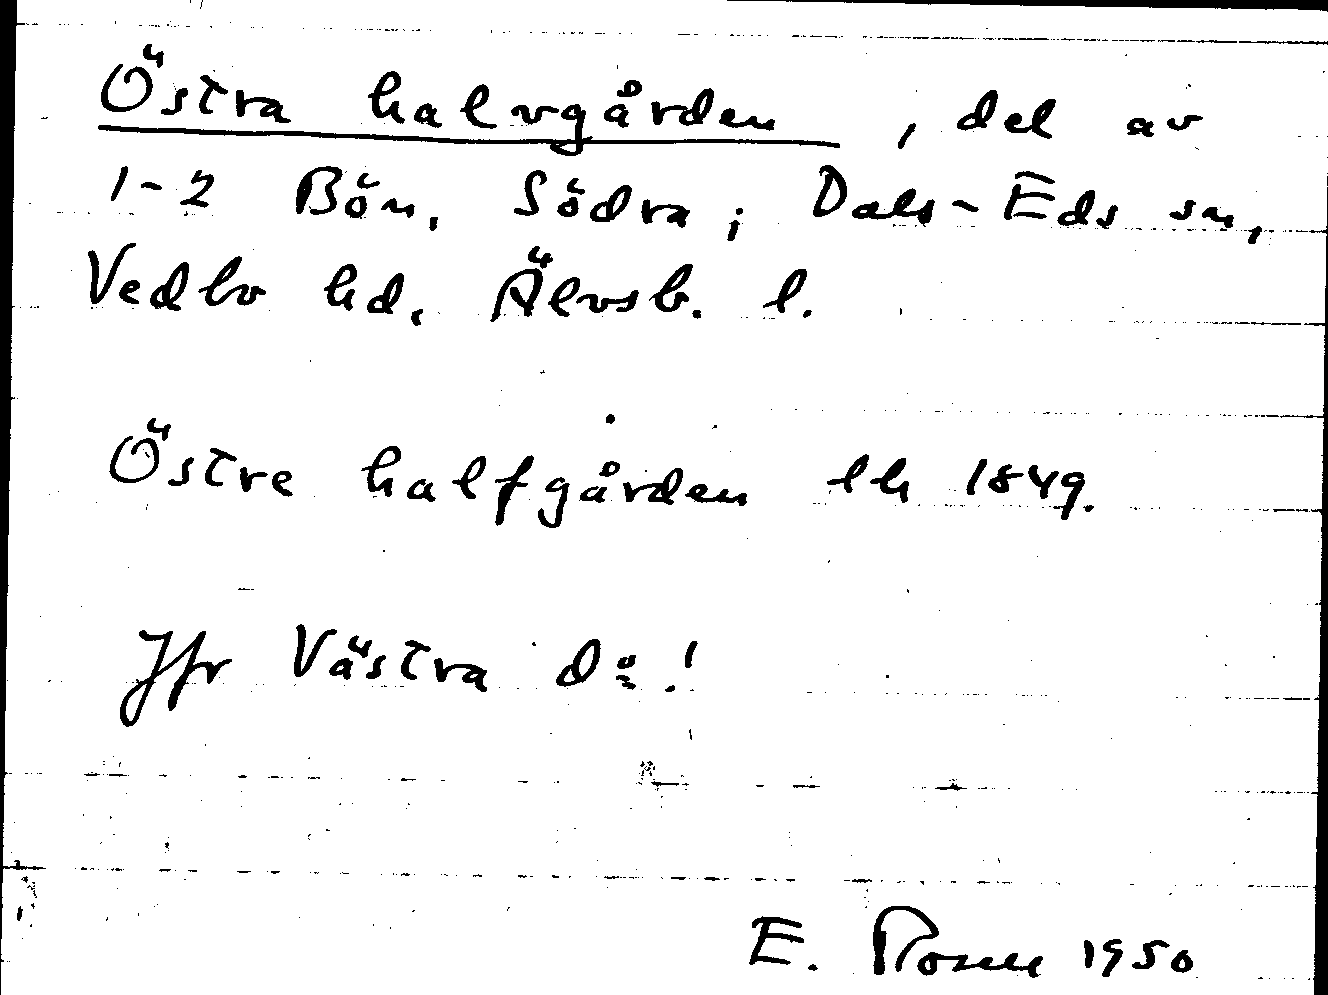 Östra halvgården, del av
1-2 Bön, Södra, i Dals-Eds sn,
Vedbo hd, Älvsb. l.
Östre halfgården lh 1849.
Jfr Västra d:o!
E. Rosell 1950